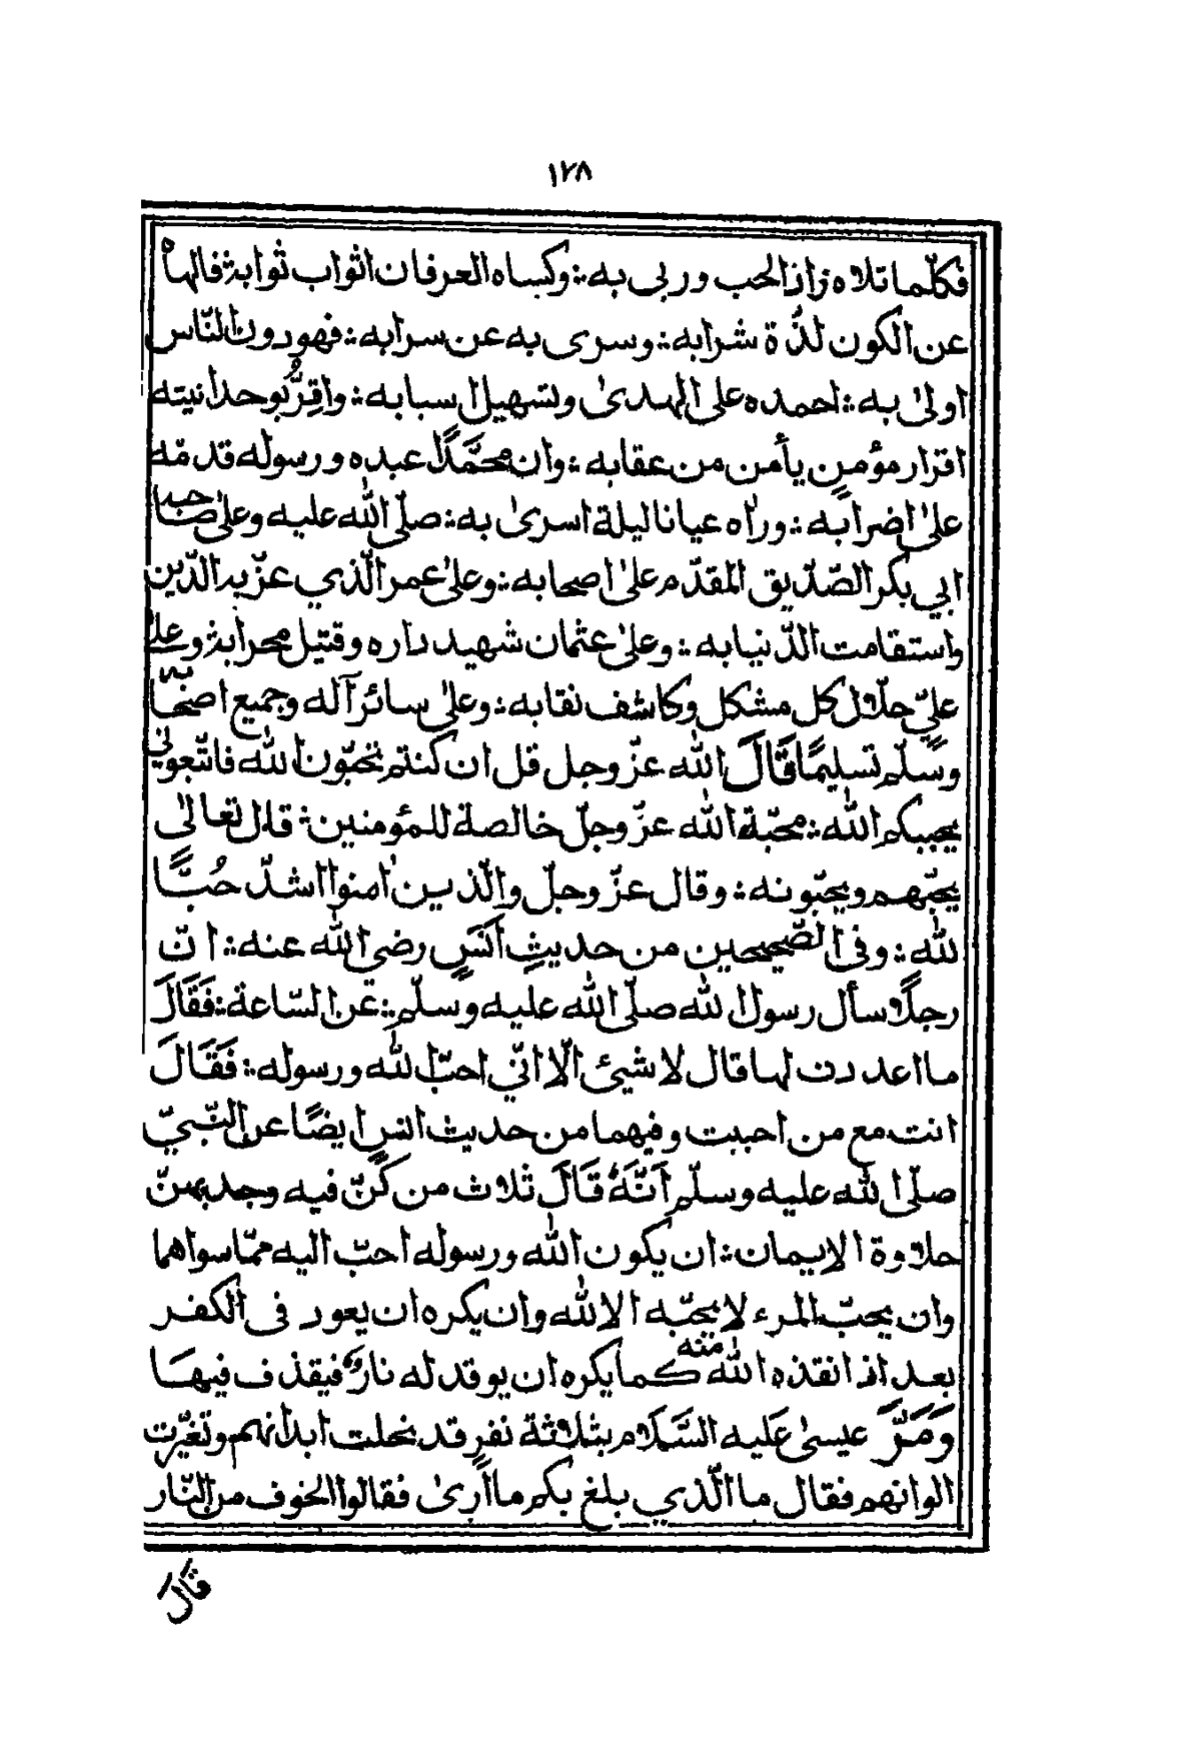 ١٢٨
فكلّما تلاه زاد الحب وربى به: وكساه العرفان اثواب ثوابه: فالهاه
عن الكون لذّة شرابه: وسرى به عن سرابه: فهو دون النّاس
اولىٰ به: احمده على الهدىٰ وتسهيل اسبابه: واقِرُّ بوحدانيته
اقرار مؤمنٍ يأمن من عقابه: وان محمَّدًا عبده ورسوله قدمّه
علىٰ اضرابه: ورآه عيانا ليلة اسرىٰ به: صلّى الله عليه وعلىٰ صاحبه
ابي بكر الصّدّيق المقدّم علىٰ اصحابه: وعلىٰ عمر الّذي عزّ به الدّين
واستقامت الدّنيا به: وعلىٰ عثمان شهيد داره وقتيل محرابه: وعلىٰ
عليّ حلّال كل مشكل وكاشف نقابه: وعلىٰ سائر آله وجميع اصحابه
وسَلّم تسليمًا قَالَ الله عزّ وجل قل ان كنتم تحبّون الله فاتّبعوني
يحببكم الله: محبّة الله عزّ وجلّ خالصة للمؤمنين: قال تعالىٰ
يحبّهم ويحبّونه: وقال عزّ وجلّ والّذين اٰمنوا اشدّ حُبًّا
لله: وفى الصّحيحين من حديثِ اَنَسٍ رضى الله عنه: انّ
رجلًا سأل رسول الله صلّى الله عليه وسلّم: عَن السّاعة: فَقَالَ
ما اعددت لها قال لا شيئ الّا انّي احبّ الله ورسوله: فَقَالَ
انت مع من احببت وفيهما من حديث انسٍ ايضًا عن النّبيّ
صلّى الله عليه وسلّم اَنَّهُ قَالَ ثلاث من كُنّ فيه وجد بهنّ
حلاوة الايمان: ان يكون الله ورسوله احبّ اليه ممّا سواهما
وان يحبّ المرء لا يحبّه الا لله وان يكره ان يعود فى الكفر
بعد اذ انقذه الله منه كما يكره ان يوقد له نارٌ فيقذف فيها
وَمَرَّ عيسىٰ عَليه السَّلام بثلاثة نفرٍ قد نحلت ابدانهم وتغيّرت
الوانهم فقال ما الّذي بلغ بكم ما اَرىٰ فقالوا الخوف من النّار
قال